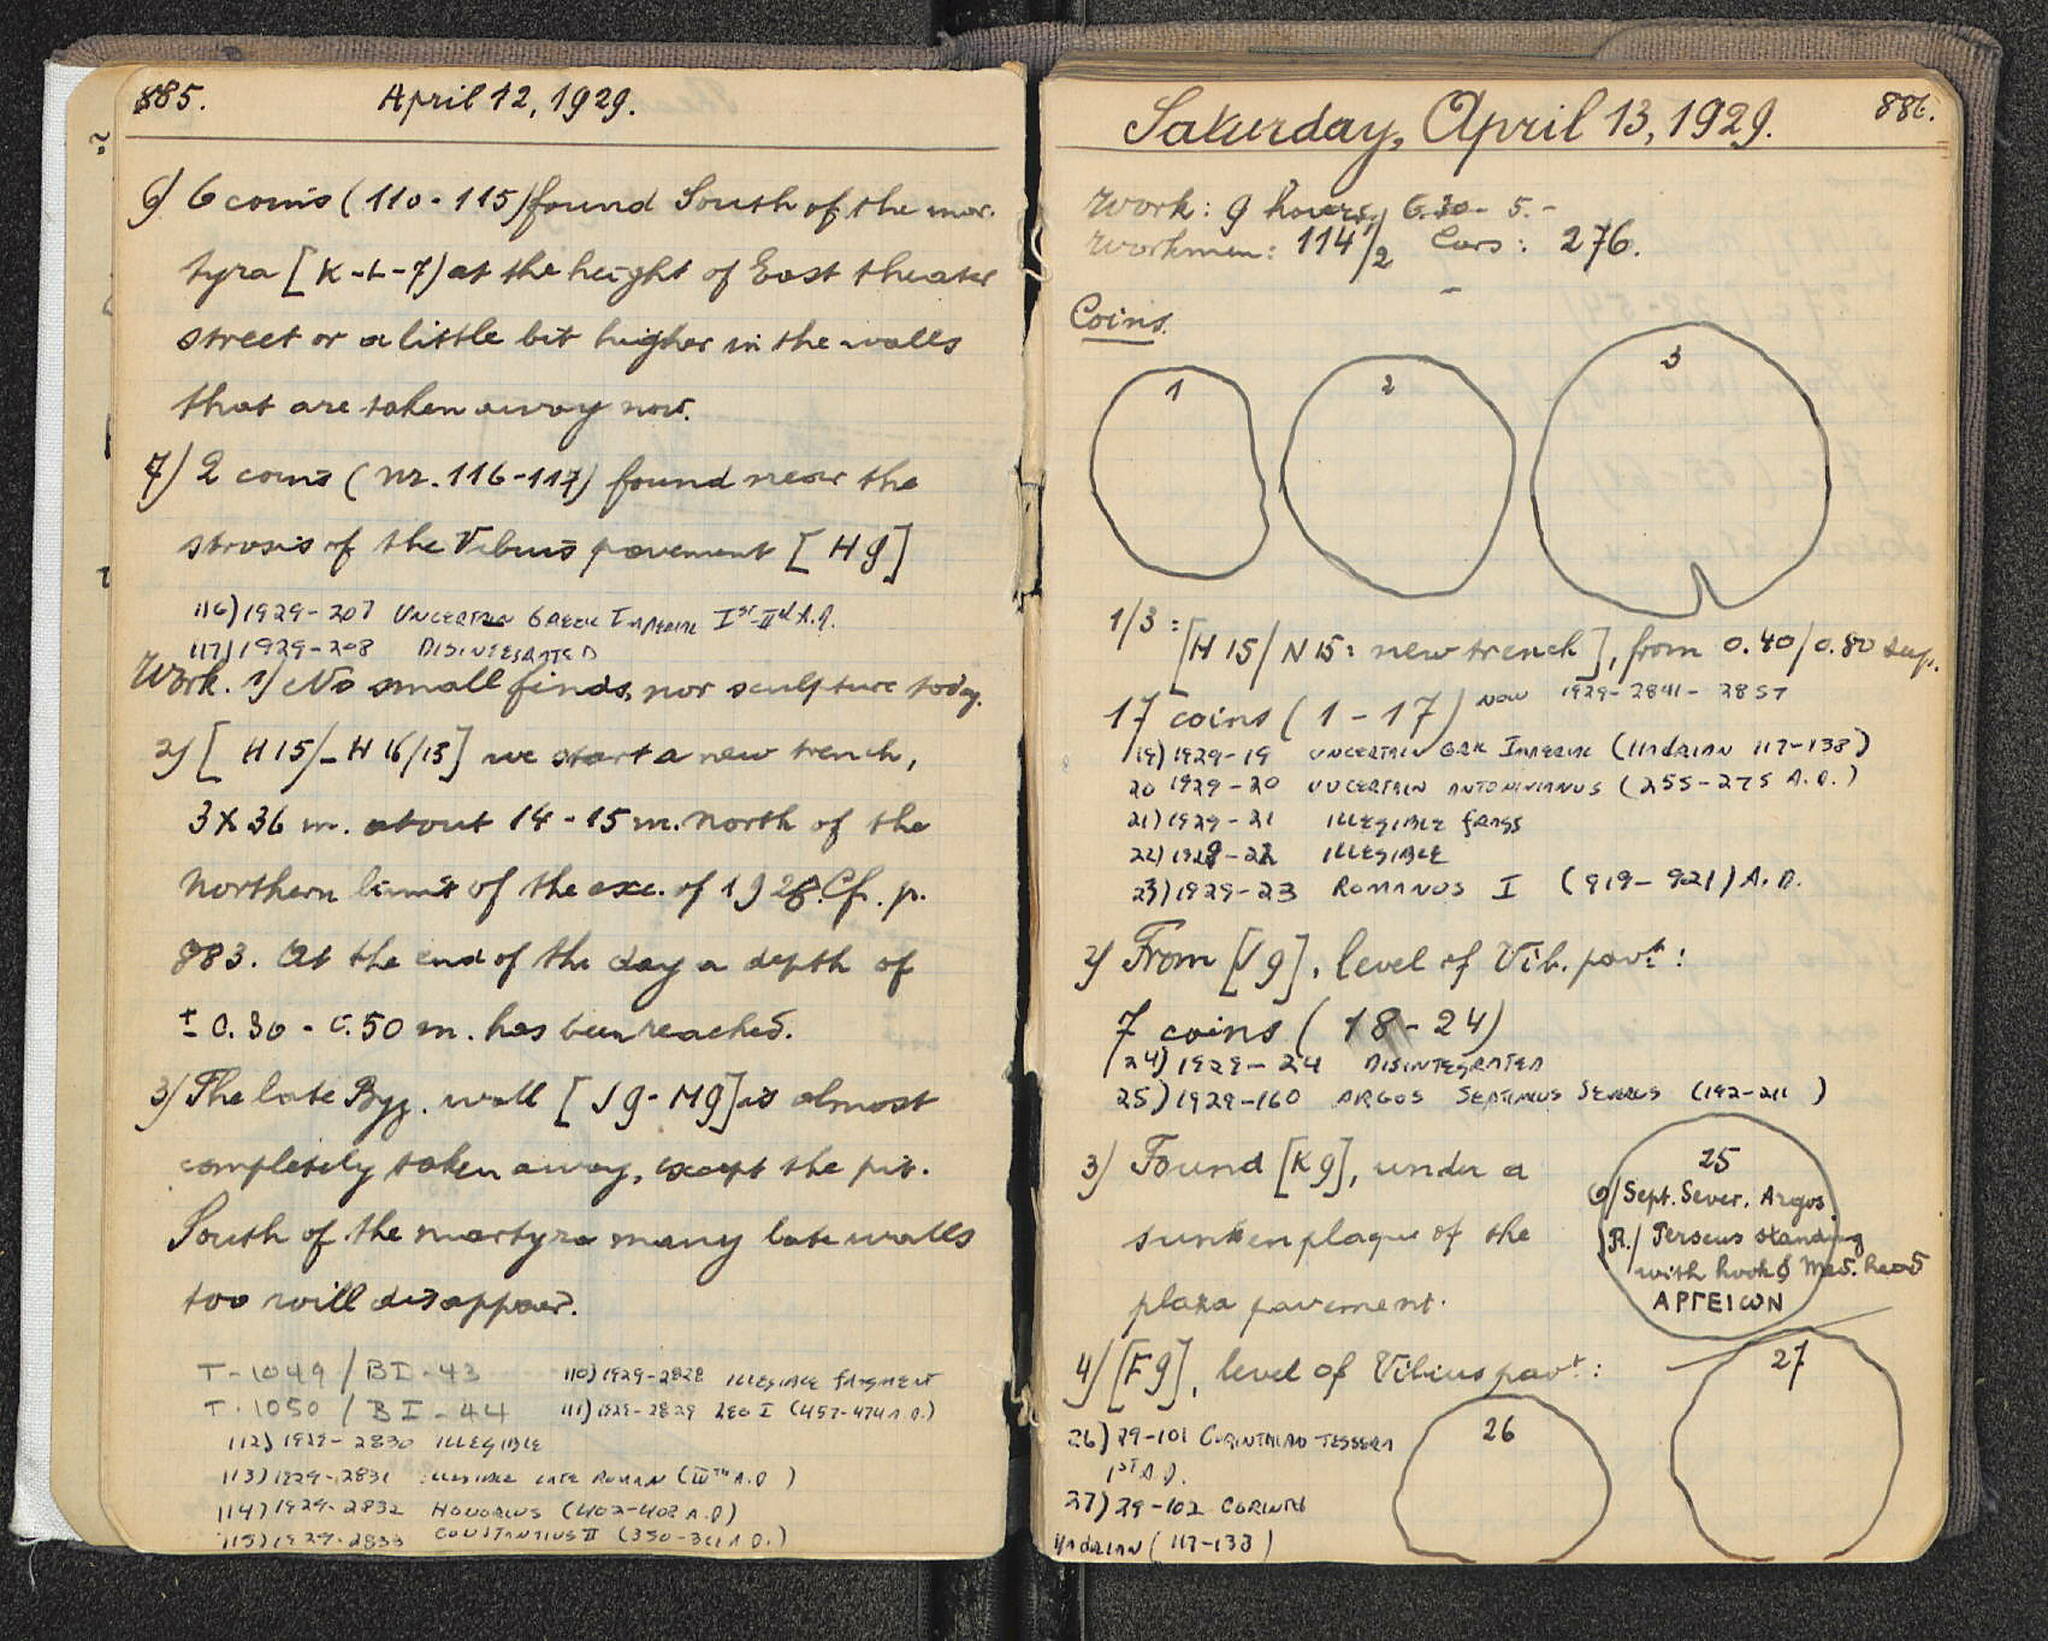 885.
April 12, 1929.
6) 6 coins (110-115) found South of the mar-
tyra [K-L-7) at the height of East theater
street or a little bit higher in the walls
that are taken away now.
7) 2 coins (nr. 116-117) found near the
strosis of the Vibius pavement [H 9]
116) 1929-207 UNCERTAIN GREEK IMPERIAL Ist-IInd A.D.
117) 1929-208 DISINTEGRATED
Work. 1) No small finds, nor sculpture today.
2) [H15/-H16/13] we start a new trench,
3 X 36 m. about 14-15 m. north of the
northern limit of the exc. of 1928. Cf. p.
883. At the end of the day a depth of
± 0.30 - 0.50 m. has been reached.
3) The late Byz. wall [J9-M9] is almost
completely taken away, except the pit.
South of the martyra many late walls
too will disappear.
T-1049 / BI-43
T-1050 / BI-44
110) 1929-2828 ILLEGIBLE FRAGMENT
111) 1929-2829 LEO I (457-474 A.D.)
112) 1929-2830 ILLEGIBLE
113) 1929-2831 ILLEGIBLE LATE ROMAN (IVTH A.D)
114) 1929-2832 HONORIUS (402-408 A.D)
115) 1929-2833 CONSTANTIUS II (350-361 A.D.)
Saturday, April 13, 1929.
886.
Work: 9 hours, 6.30-5.-
Workmen: 114/2 Cars: 276.
Coins.
1
2
3
1/3: [H15/N15: new trench], from 0.40/0.80 sup.
17 coins (1-17) NOW 1929-2841-2857
19) 1929-19 UNCERTAIN GRK IMPERIAL (HADRIAN 117-138)
20 1929-20 UNCERTAIN ANTONINIANUS (255-275 A.D.)
21) 1929-21 ILLEGIBLE FRAGS
22) 1929-22 ILLEGIBLE
23) 1929-23 ROMANUS I (919-921) A.D.
2) From [J9], level of Vib. pavt:
7 coins (18-24)
24) 1929-24 DISINTEGRATED
25) 1929-160 ARGOS SEPTIMUS SEVERUS (192-211)
3) Found [K9], under a
sunken plaque of the
plaza pavement.
25
O/ Sept. Sever. Argos
R./ Perseus standing
with hook & Med. head
ΑΡΓΕΙΩΝ
4) [F9], level of Vibius pavt.:
26) 29-101 CORINTHIAN TESSERA
1ST A.D.
27) 29-102 CORINTH
HADRIAN (117-138)
26
27